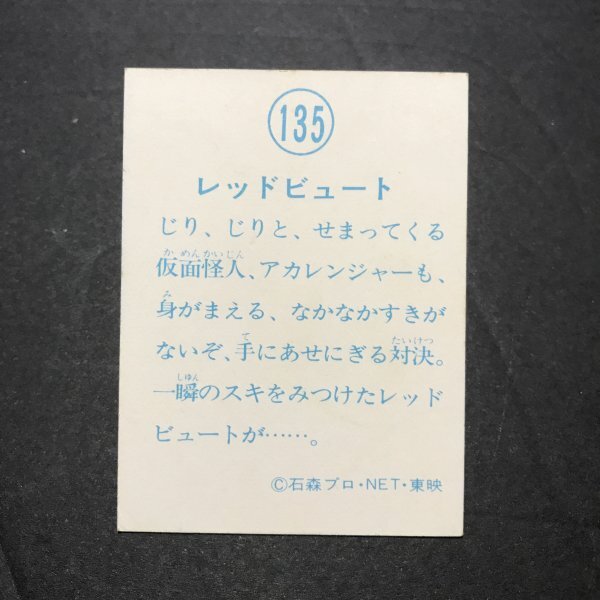 135
レッドビュート
じり、じりと、せまってくる
仮面怪人、アカレンジャーも、
身がまえる、なかなかすきが
ないぞ、手にあせにぎる対決。
一瞬のスキをみつけたレッド
ビュートが……。
©石森プロ・NET・東映